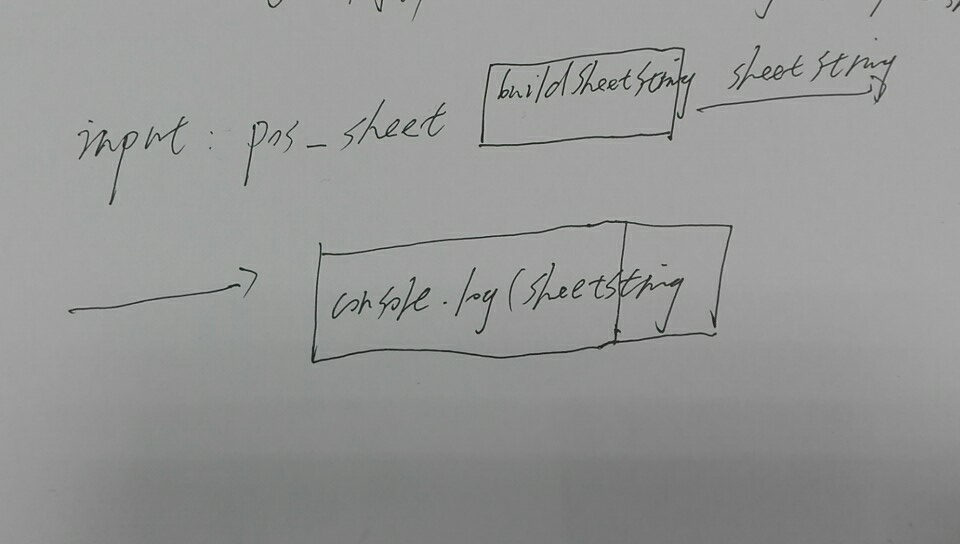 input: pos_sheet buildsheetstring sheetstring
console.log(sheetstring